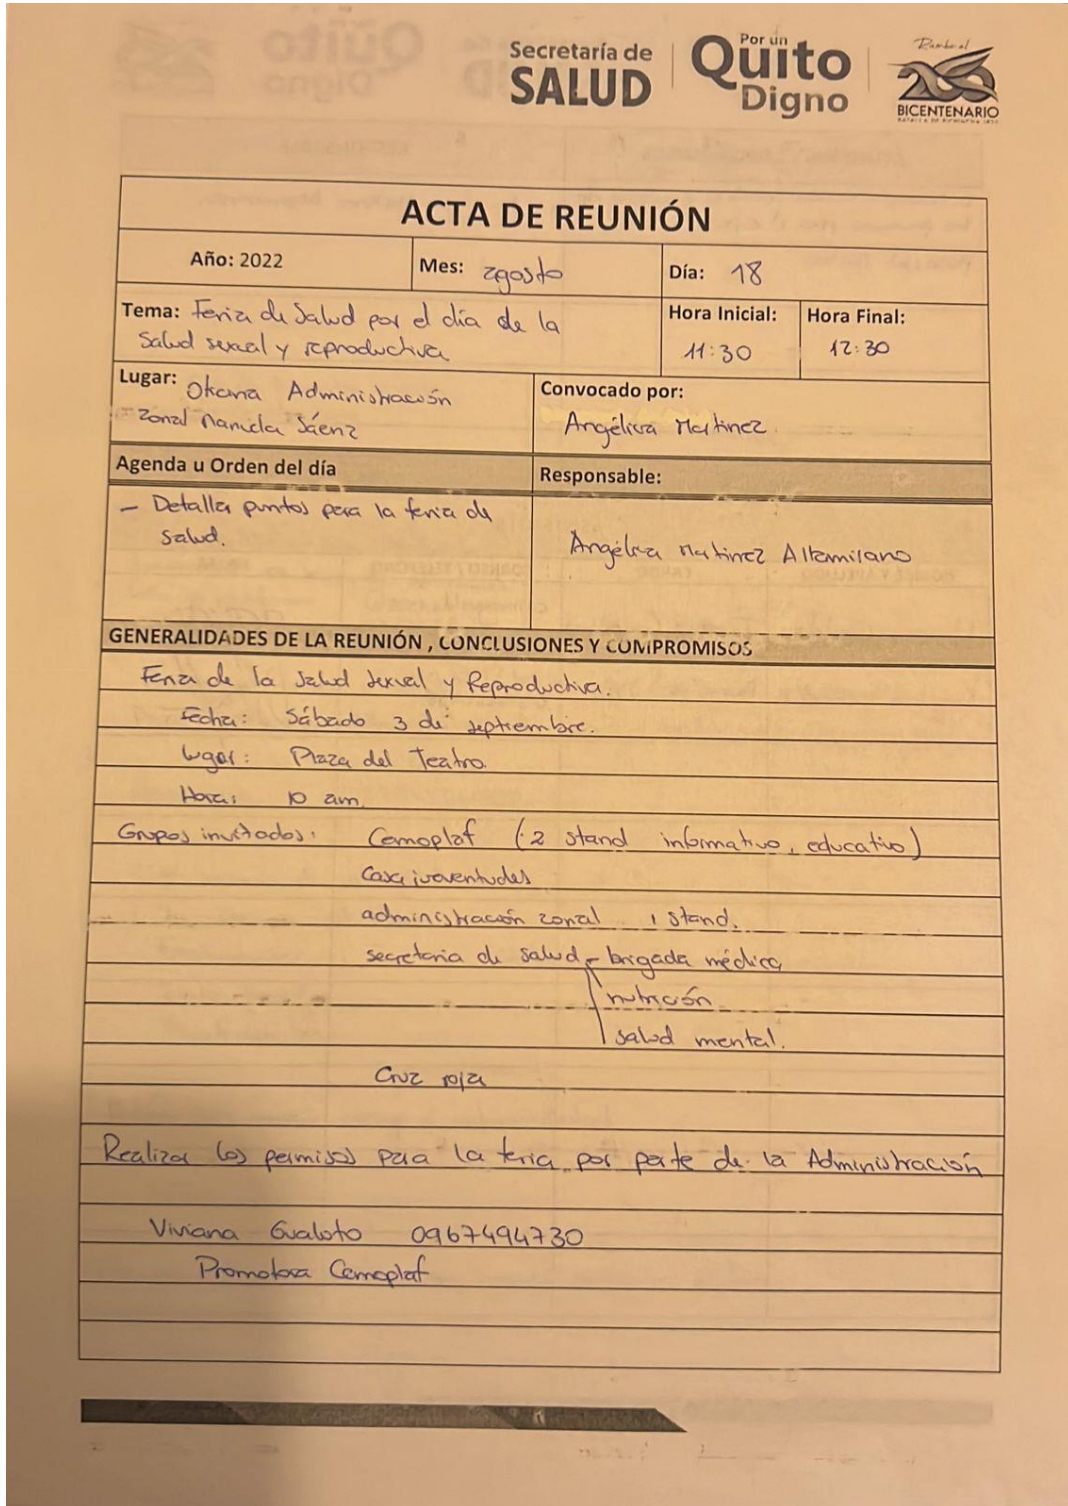 Secretaría de
SALUD
Por un
Quito
Digno
BICENTENARIO
ACTA DE REUNIÓN
Año: 2022
Mes: agosto
Día: 18
Tema: Feria de Salud por el día de la
Salud sexual y reproductiva
Hora Inicial:
11:30
Hora Final:
12:30
Lugar: Administración
Zonal Manuela Sáenz
Convocado por:
Angélica Martinez
Agenda u Orden del día
Responsable:
- Detalles puntos para la feria de
Salud.
Angélica Martinez Altamirano
GENERALIDADES DE LA REUNIÓN , CONCLUSIONES Y COMPROMISOS
Feria de la Salud Sexual y Reproductiva.
Fecha: Sábado 3 de septiembre.
Lugar: Plaza del Teatro.
Hora: 10 am.
Grupos invitados: Cemoplaf (2 stand informativo, educativo)
Casa juventudes
administración zonal 1 stand.
secretaria de salud - brigada médica
nutrición
salud mental.
Cruz roja
Realizar los permisos para la feria por parte de la Administración
Viviana Gualoto 0967494730
Promotora Cemoplaf